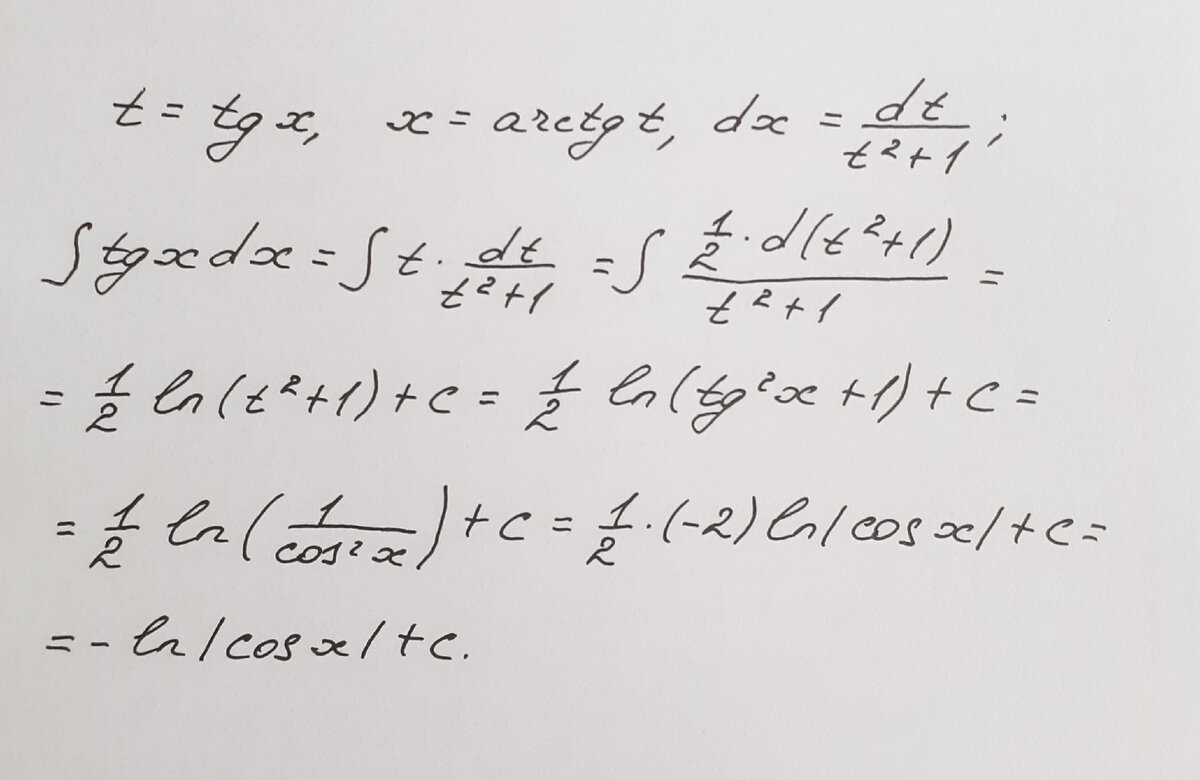 t = tg x, x = arctg t, dx = dt/(t²+1);
∫ tg x dx = ∫ t · dt/(t²+1) = ∫ (1/2 · d(t²+1))/(t²+1) =
= 1/2 ln(t²+1) + c = 1/2 ln(tg²x + 1) + c =
= 1/2 ln(1/cos²x) + c = 1/2 · (-2) ln|cos x| + c =
= - ln|cos x| + c.